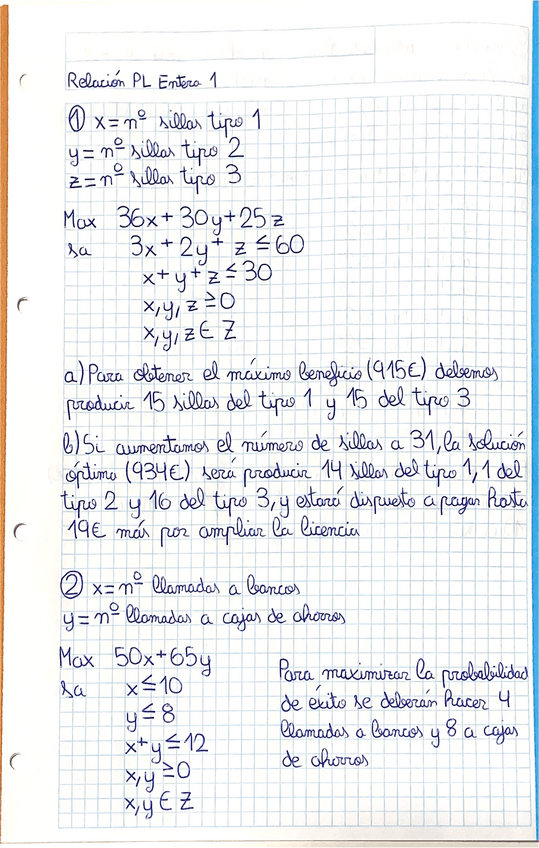 Relación PL Entera 1
① x=nº sillas tipo 1
y=nº sillas tipo 2
z=nº sillas tipo 3
Max 36x+30y+25z
sa 3x+2y+z≤60
x+y+z≤30
x,y,z≥0
x,y,z∈Z
a) Para obtener el máximo beneficio (915€) debemos
producir 15 sillas del tipo 1 y 15 del tipo 3
b) Si aumentamos el número de sillas a 31, la solución
óptima (934€) será producir 14 sillas del tipo 1, 1 del
tipo 2 y 16 del tipo 3, y estará dispuesto a pagar hasta
19€ más por ampliar la licencia
② x=nº llamadas a bancos
y=nº llamadas a cajas de ahorros
Max 50x+65y
sa x≤10
y≤8
x+y≤12
x,y≥0
x,y∈Z
Para maximizar la probabilidad
de éxito se deberán hacer 4
llamadas a bancos y 8 a cajas
de ahorros